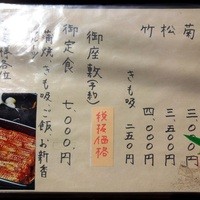 菊 三、〇〇〇円
松 三、五〇〇円
竹 四、〇〇〇円
きも吸 二五〇円
御座敷(予約)
税抜価格
御定食 七、〇〇〇円
蒲焼、きも吸、ご飯、お新香
様各位